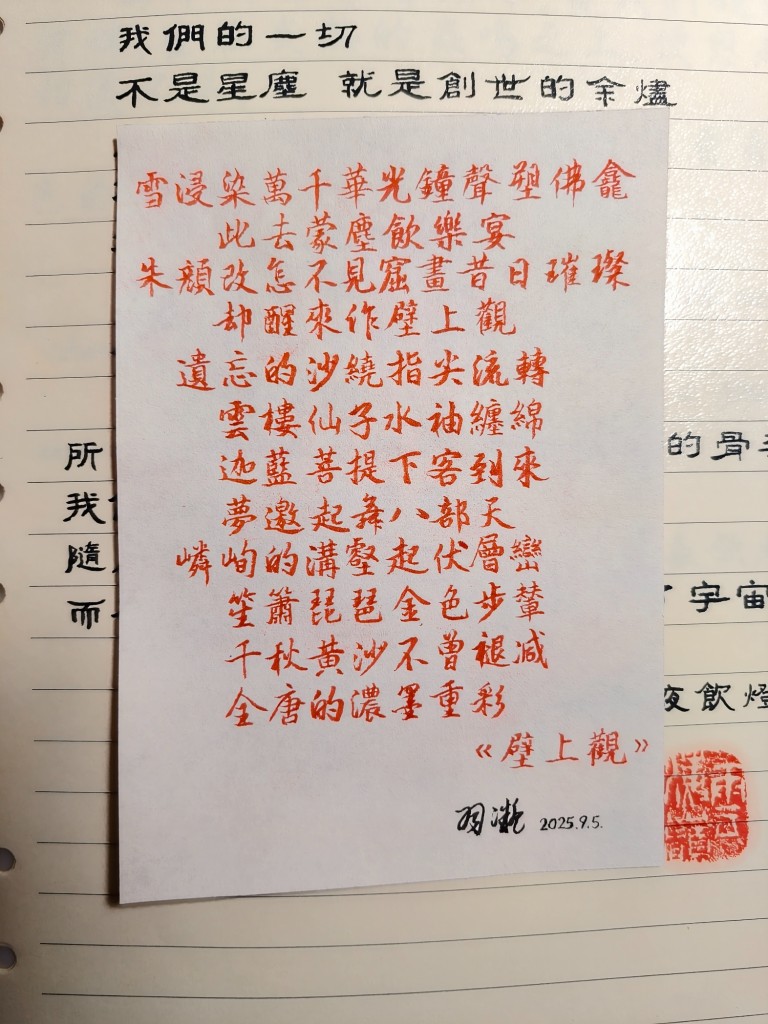 我們的一切
不是星塵 就是創世的余燼
雪浸染萬千華光鐘聲塑佛龕
此去蒙塵飲樂宴
朱顏改怎不見窟畫昔日璀璨
却醒來作壁上觀
遺忘的沙繞指尖流轉
雲樓仙子水袖纏綿
迦藍菩提下客到來
夢邀起舞八部天
嶙峋的溝壑起伏層巒
笙簫琵琶金色步輦
千秋黃沙不曾褪减
全唐的濃墨重彩
《壁上觀》
2025.9.5.
所
的骨
我
隨
而
宇宙
夜飲燈